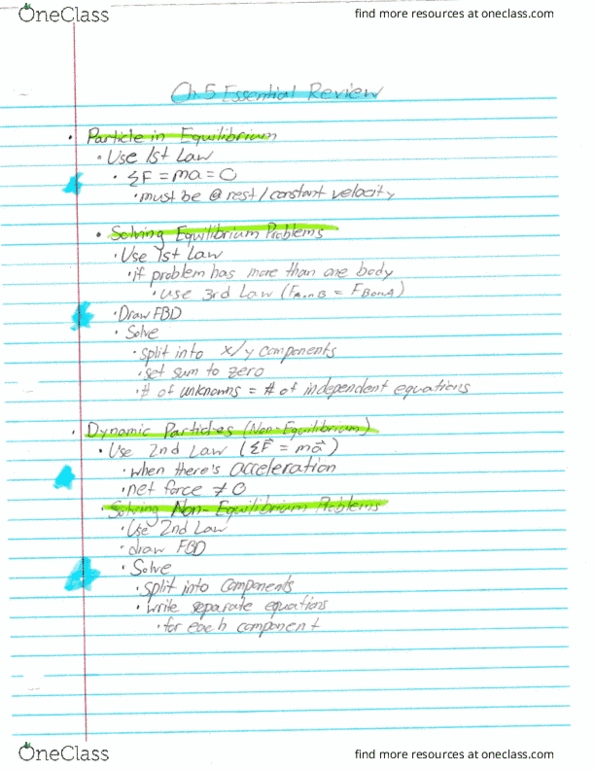 OneClass
find more resources at oneclass.com
Ch.5 Essential Review
• Particle in Equilibrium
• Use 1st Law
• ΣF = ma = 0
• must be @ rest/constant velocity
• Solving Equilibrium Problems
• Use 1st Law
• if problem has more than one body
• use 3rd Law (FAonB = FBonA)
• Draw FBD
• Solve
• split into x/y components
• set sum to zero
• # of unknowns = # of independent equations
• Dynamic Particles (Non-Equilibrium)
• Use 2nd Law (ΣF⃗ = ma⃗)
• when there's acceleration
• net force ≠ 0
• Solving Non-Equilibrium Problems
• Use 2nd Law
• draw FBD
• Solve
• split into components
• write separate equations
• for each component
OneClass
find more resources at oneclass.com